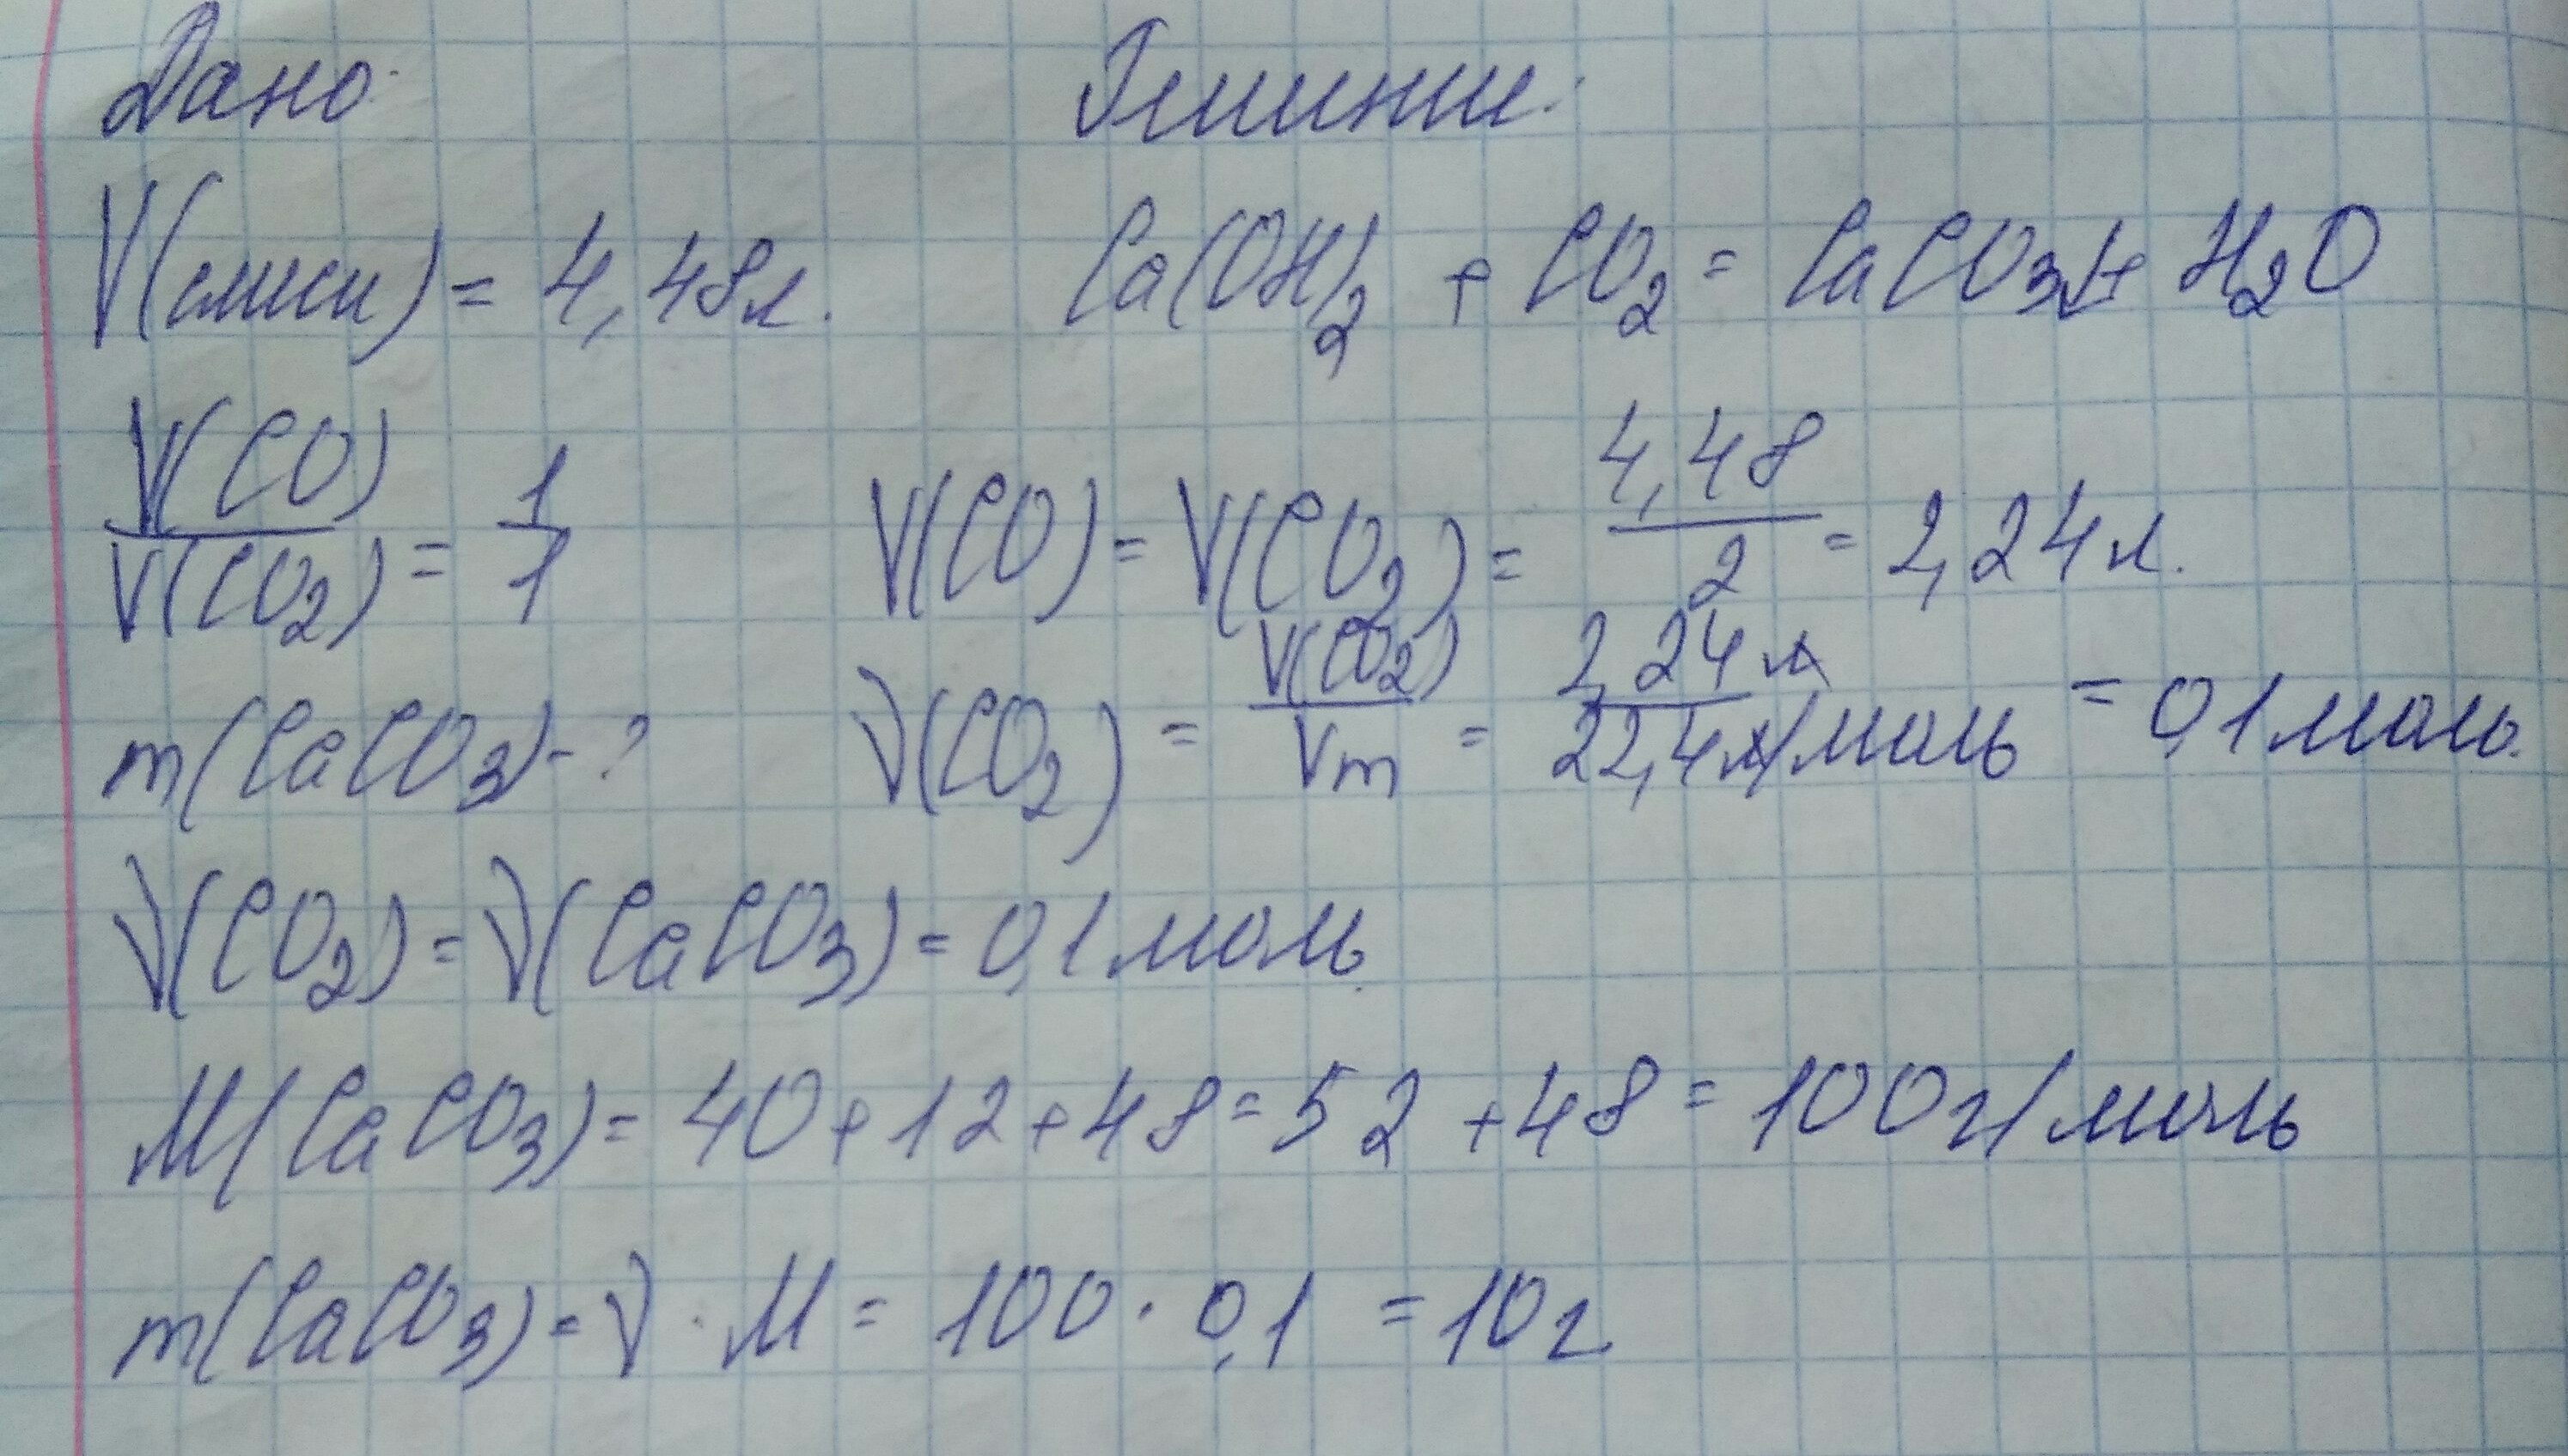 Дано:
Решение:
V(смеси) = 4,48л.
Ca(OH)₂ + CO₂ = CaCO₃↓ + H₂O
V(CO)/V(CO₂) = 1/1
V(CO) = V(CO₂) = 4,48/2 = 2,24л.
m(CaCO₃) - ?
ν(CO₂) = V(CO₂)/Vm = 2,24л/22,4л/моль = 0,1моль.
ν(CO₂) = ν(CaCO₃) = 0,1моль.
M(CaCO₃) = 40 + 12 + 48 = 52 + 48 = 100г/моль
m(CaCO₃) = ν · M = 100 · 0,1 = 10г